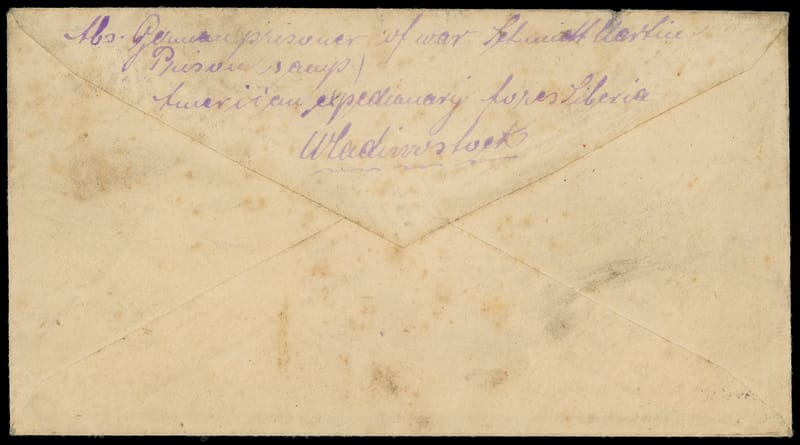 Abs. German prisoner of war Schmidt Martin
Prison camp)
American expedionary forces Siberia
Wladiwostock